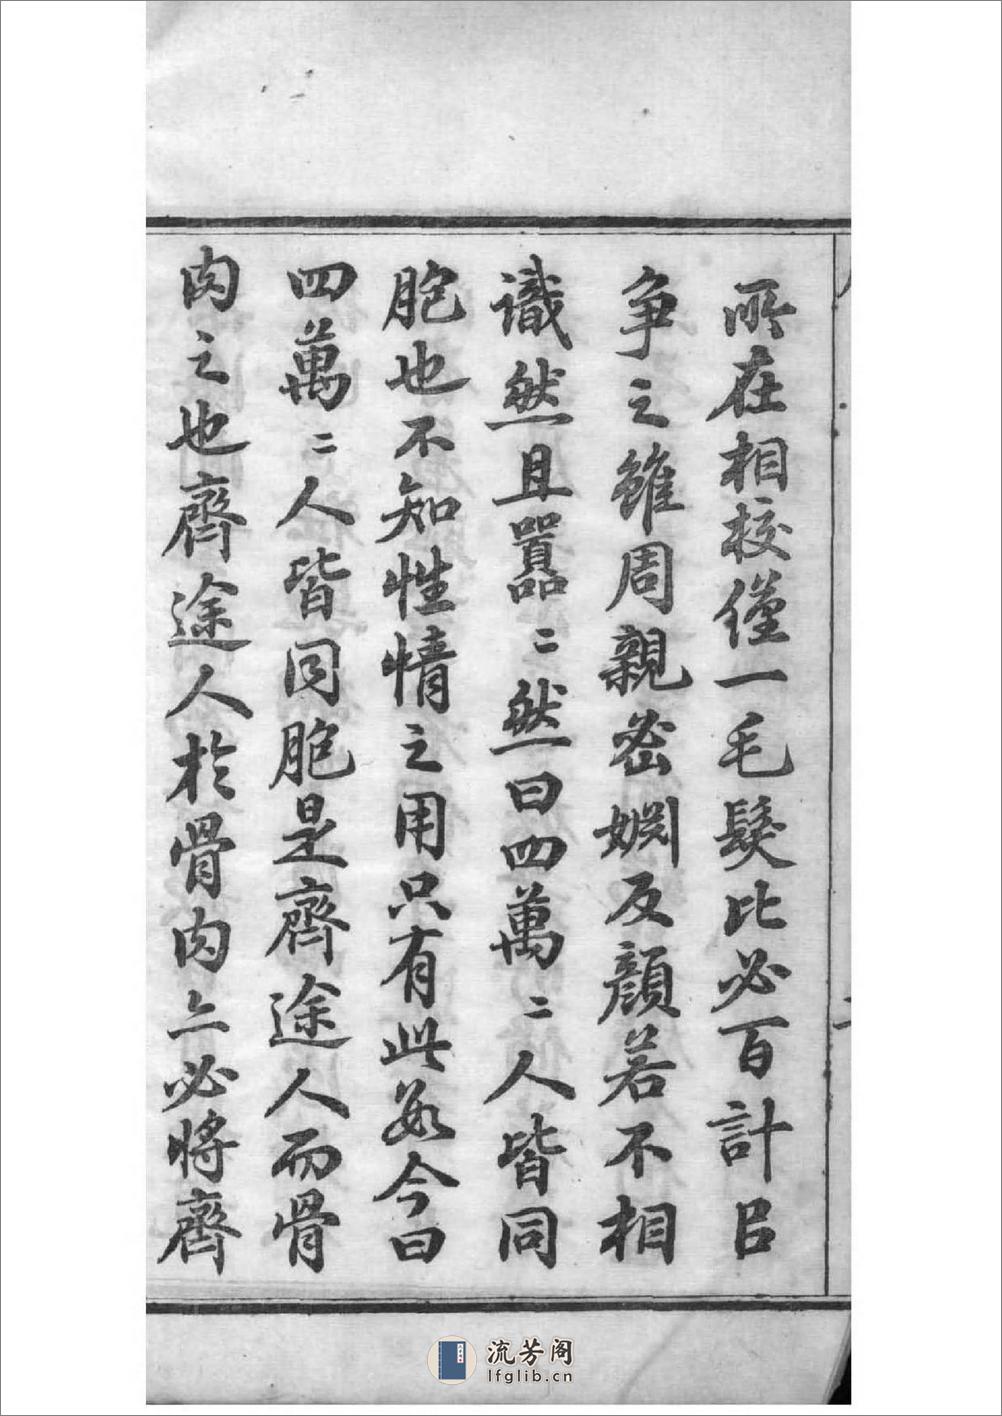 所在相校僅一毛髮比必百計㠯
争之雖周親密姻反顔若不相
識然且囂〻然曰四萬〻人皆同
胞也不知性情之用只有此數今曰
四萬〻人皆同胞是齊途人而骨
肉之也齊途人於骨肉亦必將齊
流芳阁
lfglib.cn